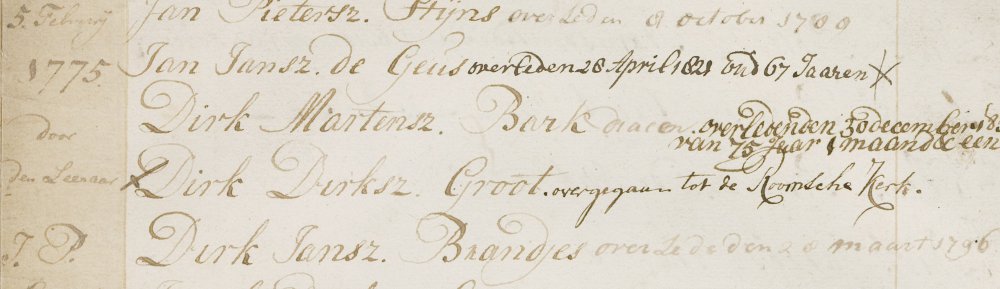 5. Febrij Jan Pietersz. Stijns overleden 8 october 1788
1775. Jan Jansz. de Geus overleden 28 April 1821 oud 67 Jaaren
Dirk Martensz. Bark diacen. overledenden 30 december 18
van 75 Jaar 1 maand & een
door
den Leeraar Dirk Dirksz. Groot. overgegaan tot de Roomsche Kerk.
J. P. Dirk Jansz. Brandjes overledenden 28 maart 1796